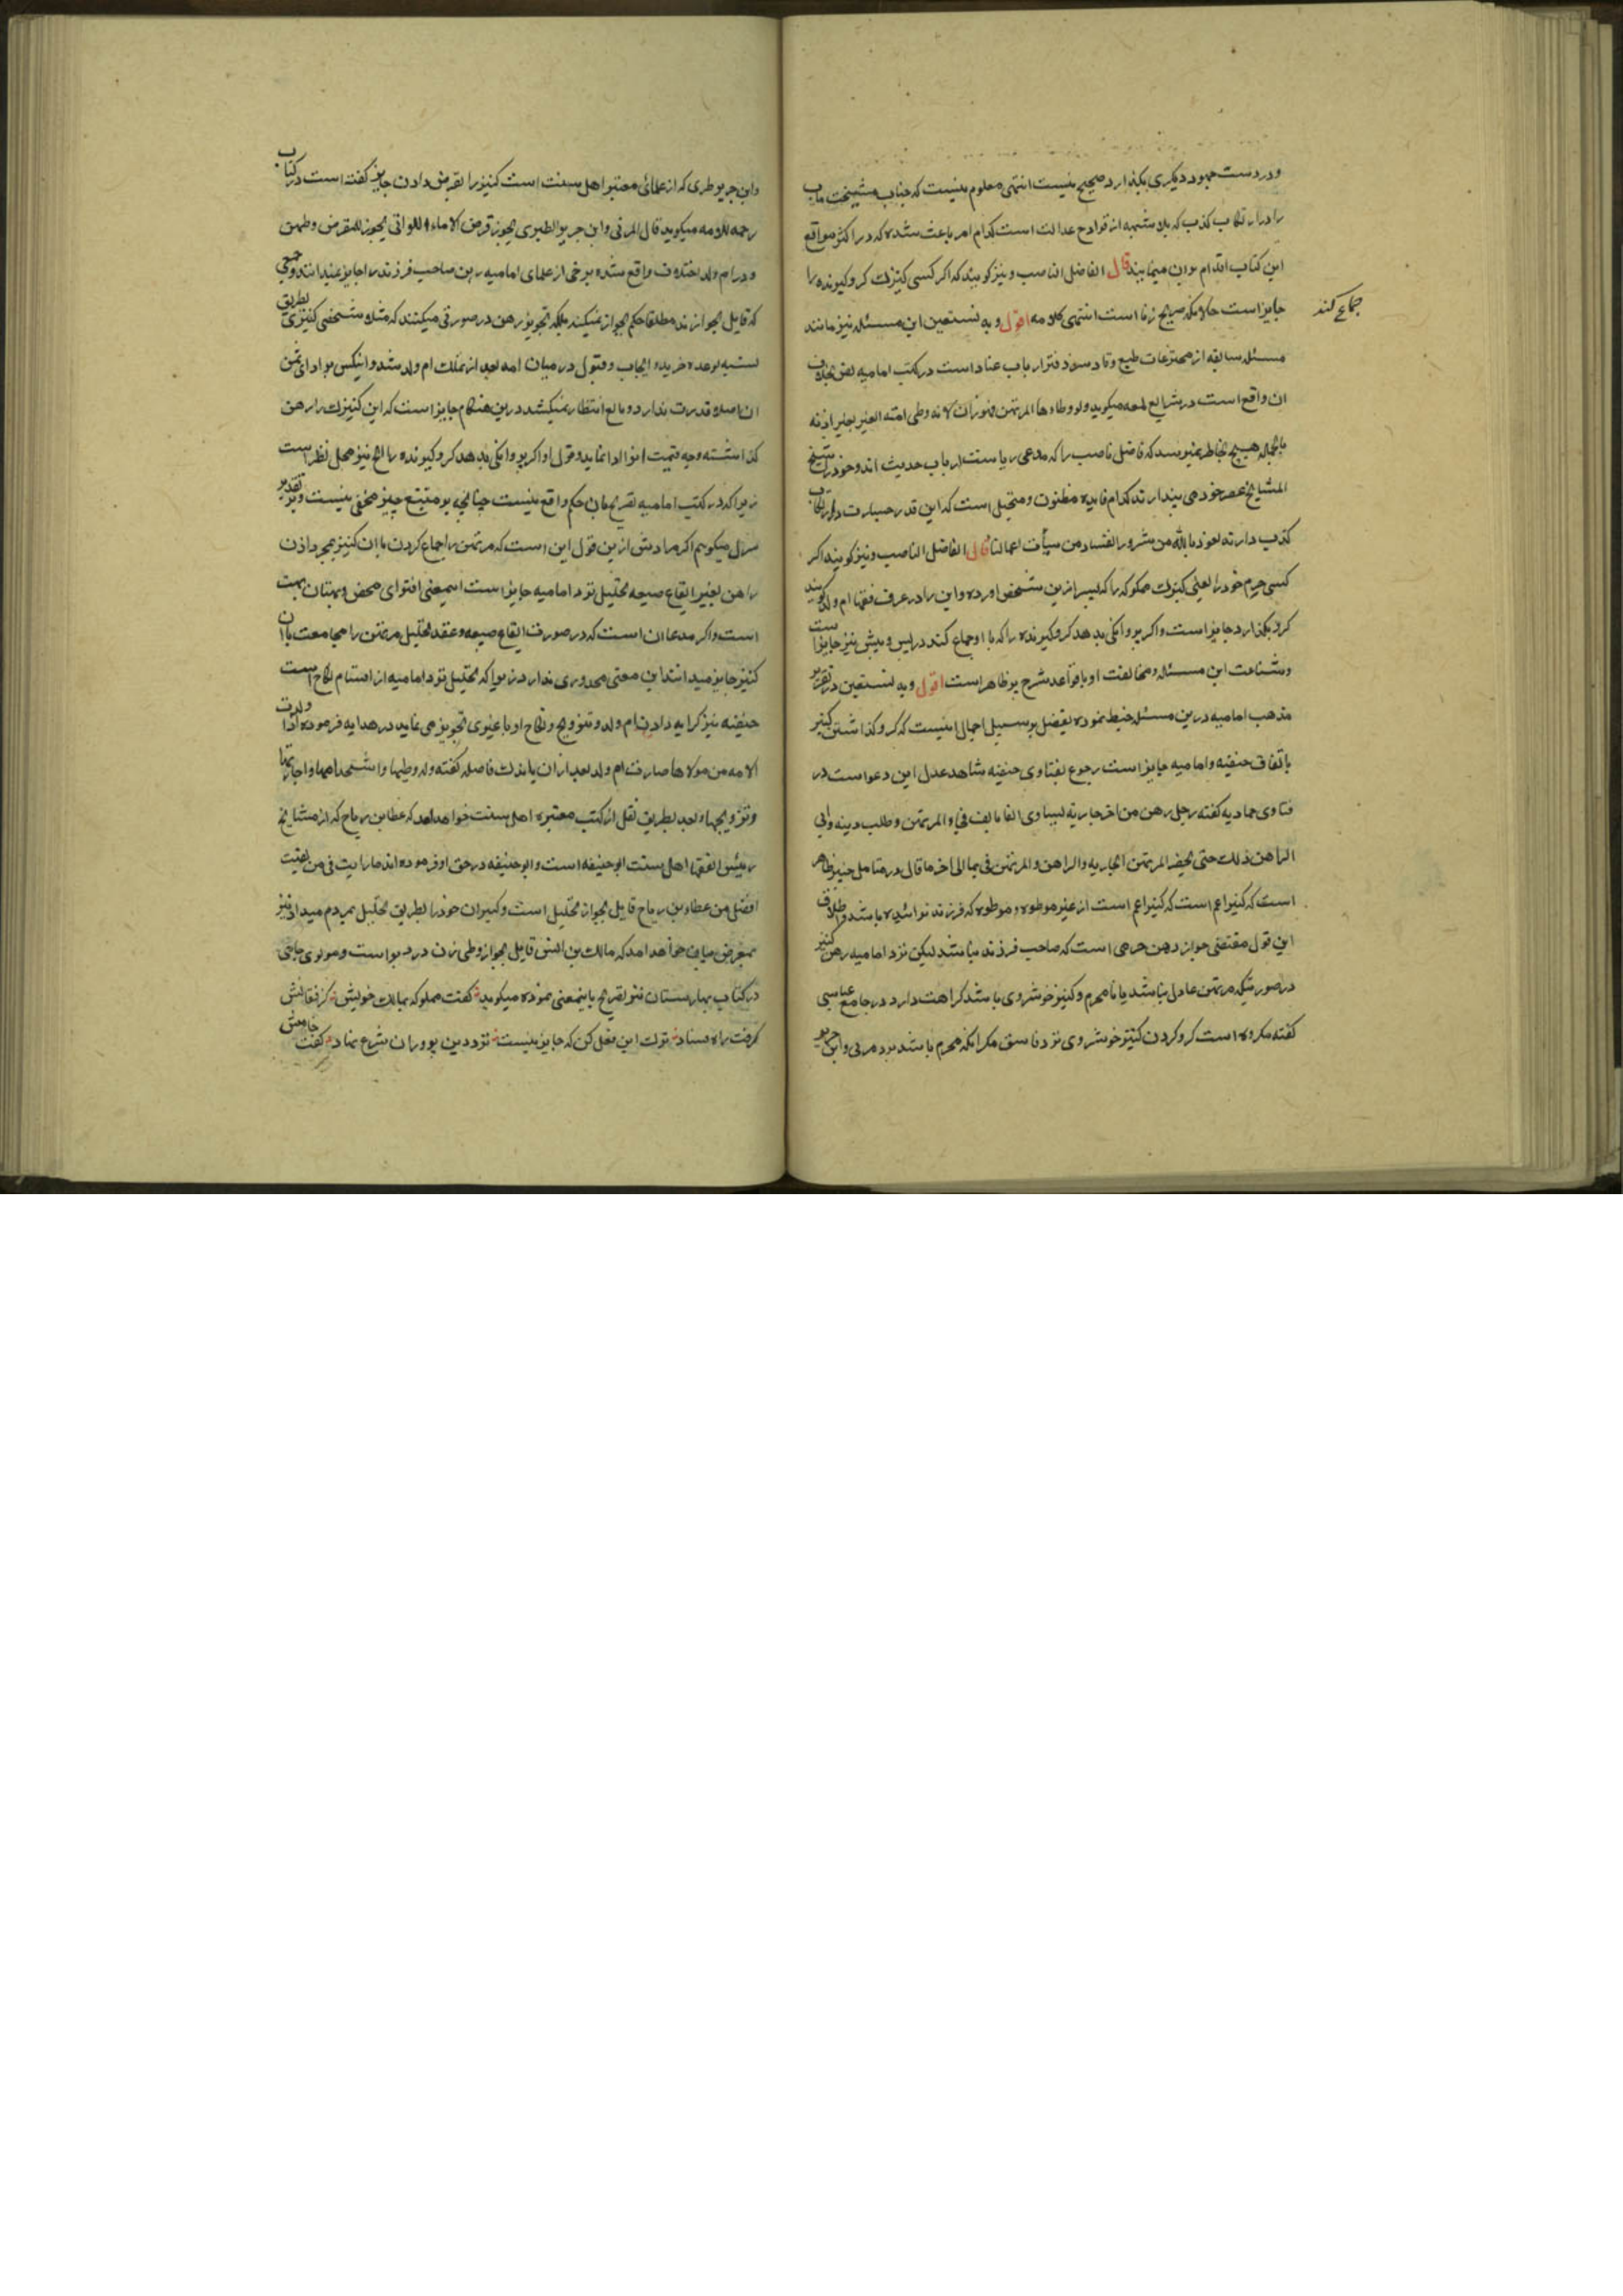 ودر دست خود دیکری بکذارد صحیح نیست انتهی معلوم نیست که جناب مشیخت ماب
را در ارتکاب کذب که بلا شبهه از قوادح عدالت است کدام امر باعث شده که در اکثر مواقع
این کتاب اقدام بران مینمایند قال الفاضل الناصب و نیز کویند که اکر کسی کنیزک کروکیرنده را
جماع کند
جایز است حالانکه صریح زنا است انتهی کلامه اقول و به نستعین این مسئله نیز مانند
مسئله سابقه از مخترعات طبع وقاد در کتب امامیه نص بخلاف
ان واقع است در شرایع لمعه میکوید ولو وطاءها المرتهن فهو زان لانه وطی امته الغیر بغیر اذنه
بالجمله هیچ بخاطر نمیرسد که فاضل ناصب را که مدعی ریاست ارباب حدیث اند وخود را شیخ
المشایخ عصر خود می پندارند کدام فایده مظنون و متخیل است که این قدر جسارت در ارتکاب
کذب دارند نعوذ بالله من شرور انفسنا و من سیأت اعمالنا قال الفاضل الناصب و نیز کویند اکر
کسی حرم خود را یعنی کنیزک مملوکه را که پسر ازین شخص اورده و این را در عرف فقها ام ولد کویند
کرو بکذارد جایز است و اکر پروانکی بدهد کروکیرنده را که با او جماع کند در پس و پیش نیز جایز است
و شناعت این مسئله و مخالفت او با قواعد شرع پر ظاهر است اقول و به نستعین در تقریر
مذهب امامیه درین مسئله خبط نموده تفضیل بر سبیل اجمال اینست که کرو کذاشتن کنیز
باتفاق حنفیه و امامیه جایز است رجوع بفتاوی حنفیه شاهد عدل این دعوا است در
فتاوی حمادیه کفته رجل رهن من اخر جاریه و طلب دینه وابی
الراهن ذلک حتی یحضر المرتهن الجاریه والراهن والمرتهن فی الی اخر ما قال و بر متامل خبیر ظاهر
است که کنیز اعم است که کنیز اعم است از غیر موطوه و موطوه که فرزند نزائیده باشد و اطلاق
این قول مقتضی جواز رهن حرمی است که صاحب فرزند نباشد لیکن نزد امامیه رهن کنیز
در صورتیکه مرتهن عادل نباشد یا نامحرم و کنیز خوشروی باشد کراهت دارد در جامع عباسی
کفته مکروه است کرو کردن کنیز خوشروی نزد فاسق مکر انکه محرم باشد نزد مزنی و ابن جریر
وابن جریر طبری که از علمای معتبر اهل سنت است کنیز را بقرض دادن جایز کفته است در کتاب
رحمه الامه میکوید قال المزنی وابن جریر الطبری یجوز قرض الاماء اللواتی یجوز للمقرض وطیهن
و در ام ولد اختلاف واقع شده برخی از علمای امامیه رهن صاحب فرزند را جایز نمیدانند و جمعی
که قایل بجواز اند مطلقا حکم بجواز نمیکنند بلکه تجویز رهن در صورتی میکنند که مثلا شخصی کنیزی بطریق
نسیه بوعده خرید و ایجاب و قبول در میان امد بعد از تملک ام ولد شد و اینکس بر ادای ثمن
ان اصلا قدرت ندارد و بایع انتظار نمیکشد درین هنکام جایز است که این کنیزک را رهن
کذاشته وجه قیمت انرا ادا نماید و قول او اکر پروانکی بدهد کروکیرنده را الخ نیز محل نظر است
زیرا که در کتب امامیه تصریح بان حکم واقع نیست چنانچه بر متتبع چیز مخفی نیست و بر تقدیر
میکویم اکر مرادش ازین قول این است که مرتهن را جماع کردن با ان کنیز بمجرد اذن
راهن بغیر ایقاع صیغه تحلیل نزد امامیه جایز است اینمعنی افترای محض و بهتان بحت
است و اکر مدعا ان است که در صورت ایقاع صیغه و عقد تحلیل مرتهن را مجامعت با ان
کنیز جایز میدانند این معنی محدوری ندارد زیرا که تحلیل نزد امامیه از اقسام نکاح است
حنفیه نیز کرایه دادن ام ولد و تزویج و نکاح او با غیری تجویز می نماید در هدایه فرموده اذا ولدت
الامه من مولاها صارت ام ولد بعد از ان باندک فاصله کفته وله وطیها واستخدامها واجارتها
وتزویجها و بعد بطریق نقل از کتب معتبره اهل سنت خواهد امد که عطا بن ریاح که از مشایخ
رئیس الفقها اهل سنت ابو حنیفه است و ابو حنیفه در حق او فرموده اند ما رایت فی من لقیت
افضل من عطاء بن ریاح قایل بجواز تحلیل است و کنیزان خود را بطریق تحلیل بمردم میداد و نیز
بمعرض بیان خواهد امد که مالک بن انس قایل بجواز وطی زن در دبر است و مولوی جامی
در کتاب بهارستان نیز تصریح باینمعنی نموده میکوید کفت مملوکه بمالک خویش کز قفایش
کرفت راه فساد ترک این فعل کن که جایز نیست نزد دین پروران شرع نهاد کفت خامش